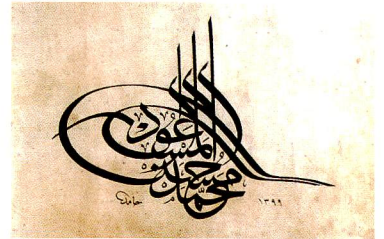 محمد
المسعود
حامد
١٣٩٩